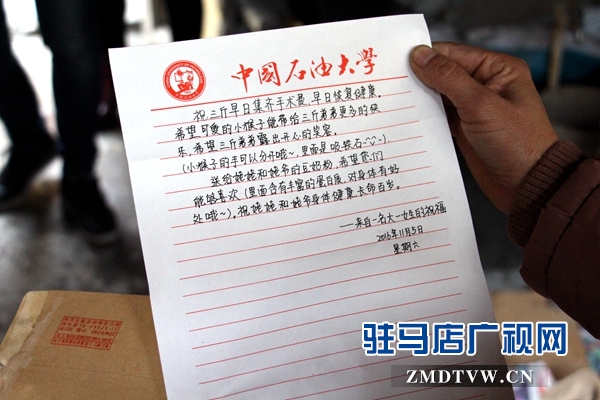 中国石油大学
祝三斤早日集齐手术费,早日恢复健康。
希望可爱的小猴子能带给三斤弟弟更多的快
乐,希望三斤弟弟露出开心的笑容。
(小猴子的手可以分开哦~,里面是吸铁石~^v^~)
送给姥姥和姥爷的豆奶粉,希望你们
能够喜欢(里面含有丰富的蛋白质,对身体有好
处哦~)。祝姥姥和姥爷身体健康长命百岁。
——来自一名大一女生的祝福
2016年11月5日
星期六
驻马店广视网
ZMDTVW.CN